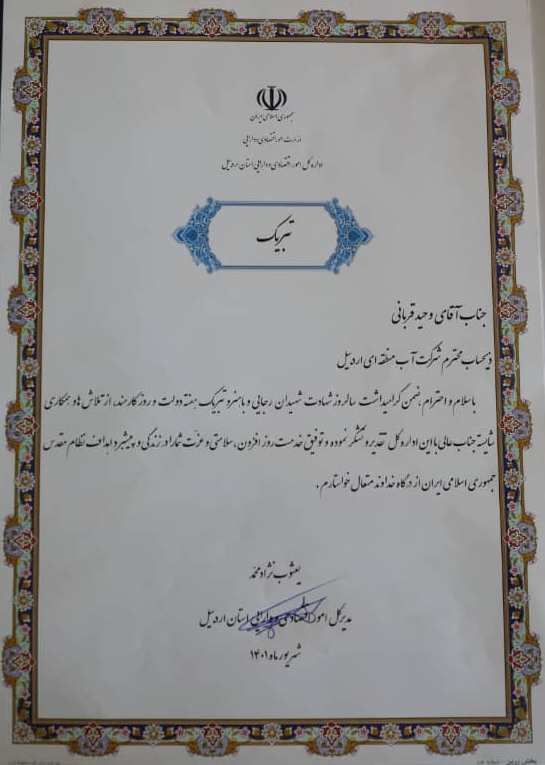 جمهوری اسلامی ایران
وزارت امور اقتصادی و دارایی
اداره کل امور اقتصادی و دارایی استان اردبیل
تبریک
جناب آقای وحید قربانی
ذیحساب محترم شرکت آب منطقه ای اردبیل
با سلام و احترام، ضمن گرامیداشت سالروز شهادت شهیدان رجایی و باهنر و تبریک هفته دولت و روز کارمند، از تلاش ها و همکاری
شایسته جناب عالی با این اداره کل تقدیر و تشکر نموده و توفیق خدمت روز افزون، سلامتی و عزت شما در زندگی و پیشبرد اهداف نظام مقدس
جمهوری اسلامی ایران از درگاه خداوند متعال خواستارم .
یعثوب نژاد محمد
مدیرکل امور اقتصادی و دارایی استان اردبیل
شهریور ماه ۱۴۰۱